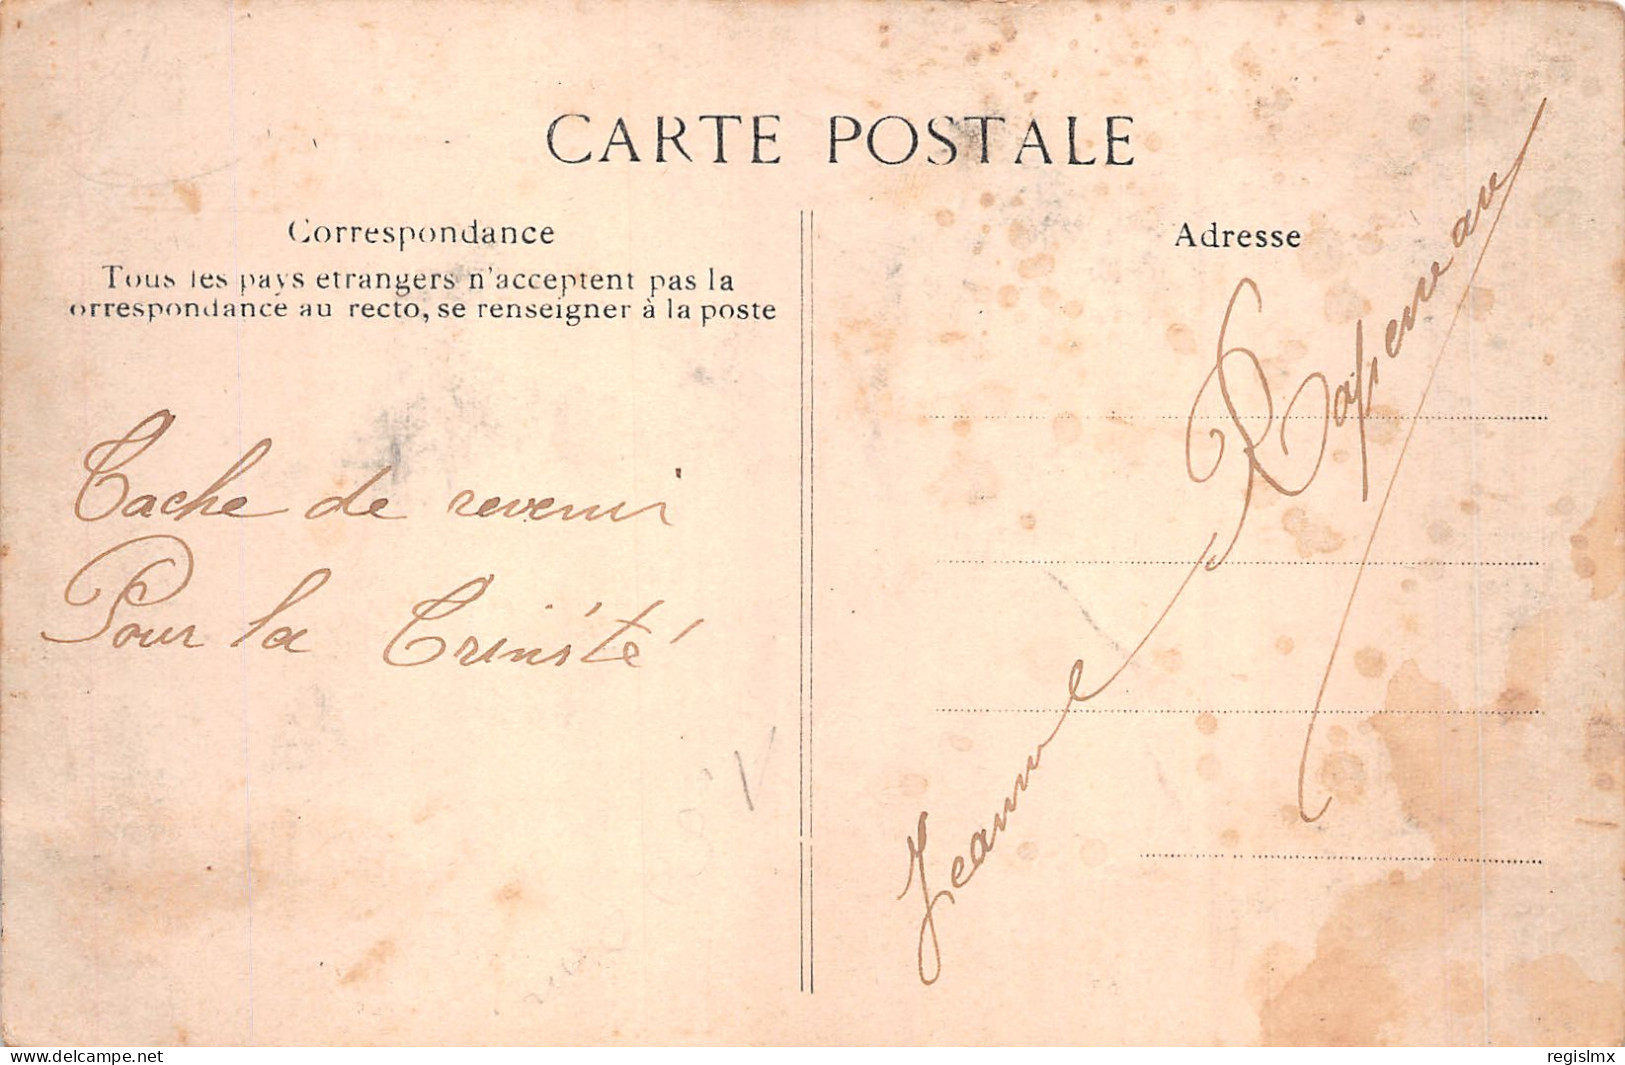 CARTE POSTALE
Correspondance
Tous les pays etrangers n'acceptent pas la
orrespondance au recto, se renseigner à la poste
Adresse
Tache de revenir
Pour la Trinité
Jeanne
www.delcampe.net
regislmx